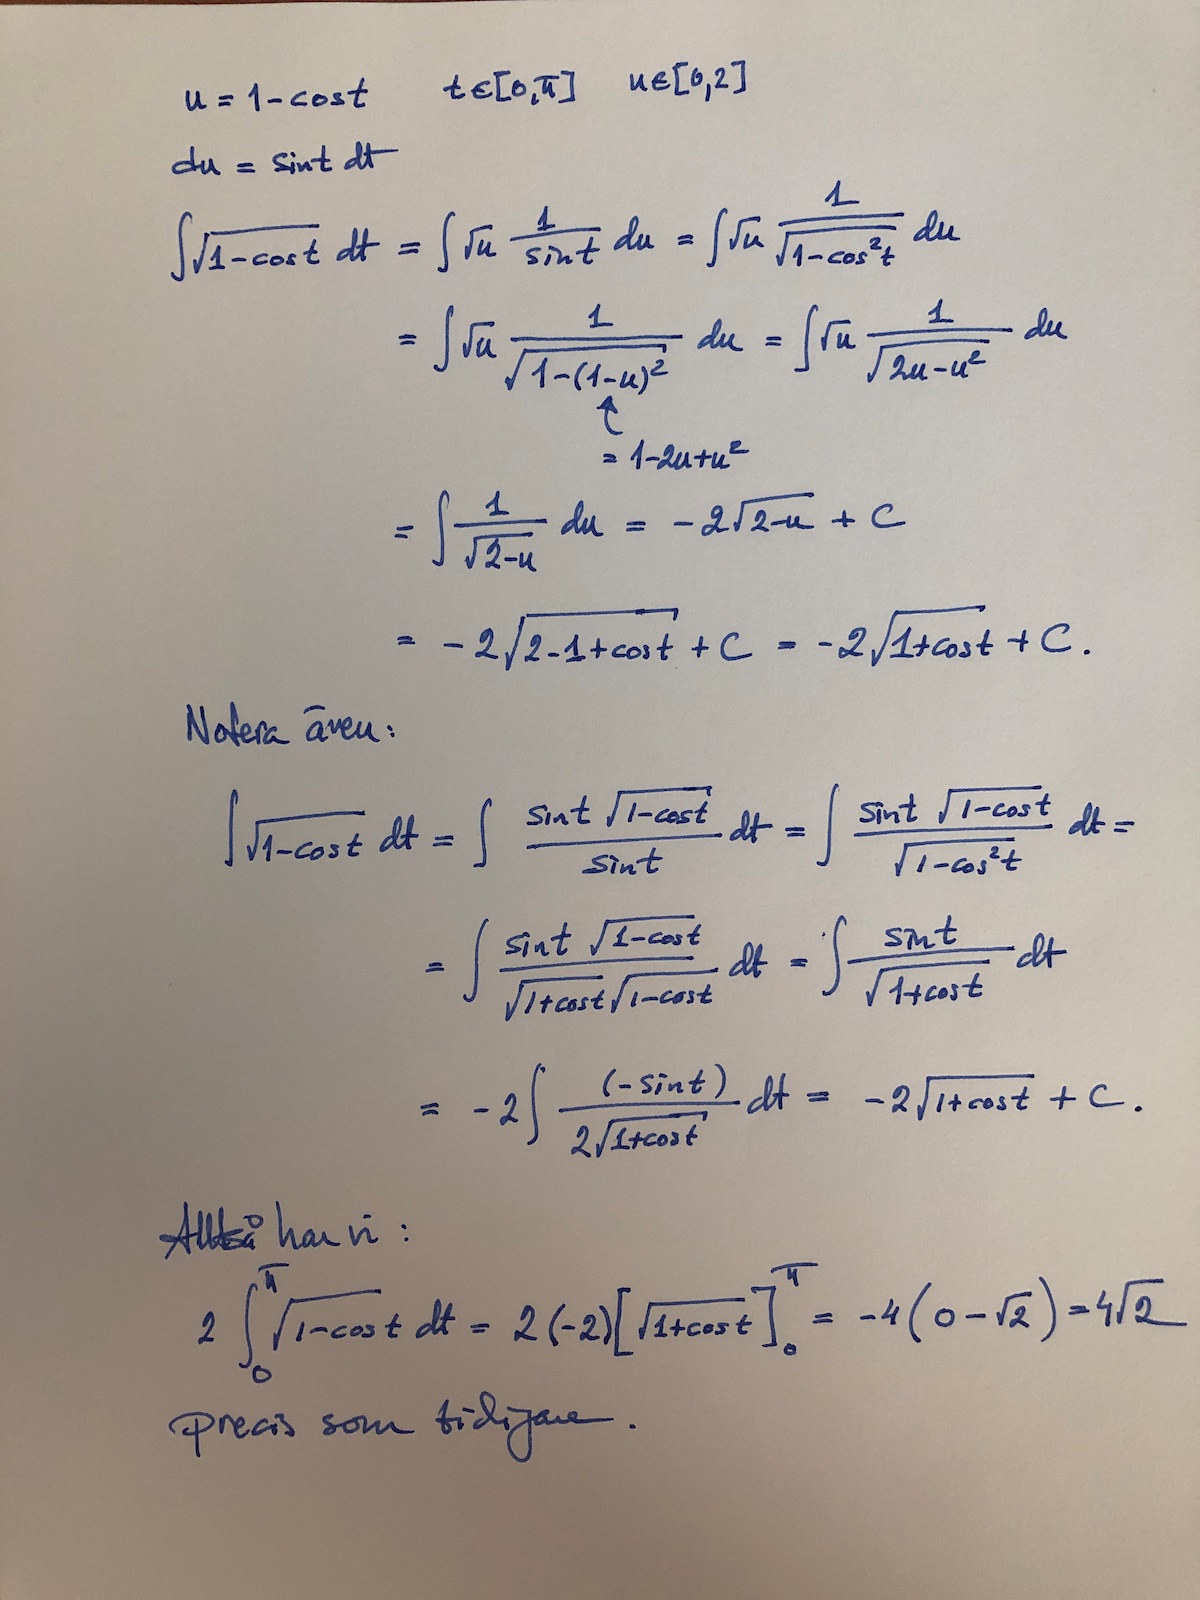 u = 1-cost   t∈[0,π]   u∈[0,2]
du = sint dt
∫√(1-cost) dt = ∫√u 1/sint du = ∫√u 1/√(1-cos²t) du
= ∫√u 1/√(1-(1-u)²) du = ∫√u 1/√(2u-u²) du
= 1-2u+u²
= ∫ 1/√(2-u) du = -2√(2-u) + C
= -2√(2-1+cost) + C = -2√(1+cost) + C.
Notera även:
∫√(1-cost) dt = ∫ (sint √(1-cost))/sint dt = ∫ (sint √(1-cost))/√(1-cos²t) dt =
= ∫ (sint √(1-cost))/(√(1+cost) √(1-cost)) dt = ∫ sint/√(1+cost) dt
= -2∫ (-sint)/(2√(1+cost)) dt = -2√(1+cost) + C.
Alltså har vi:
2 ∫₀^π √(1-cost) dt = 2(-2)[√(1+cost)]₀^π = -4(0-√2) = 4√2
precis som tidigare.